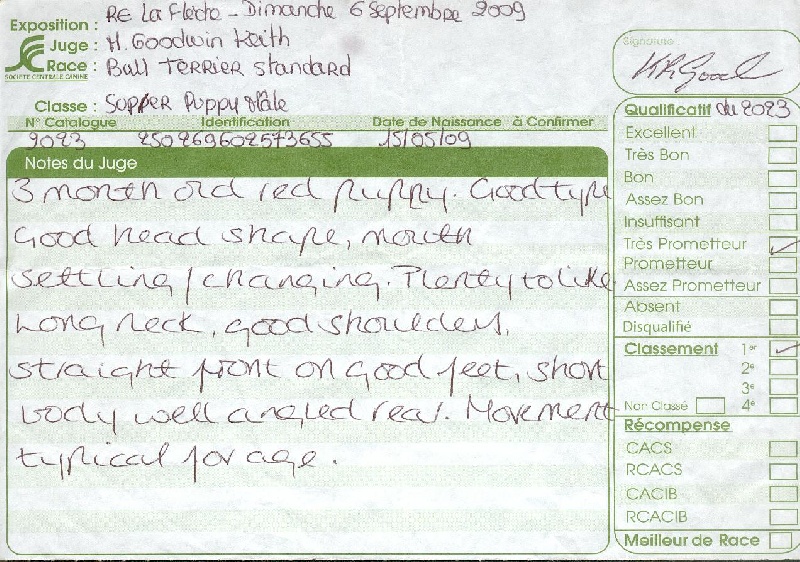 Exposition : RE La Fleche - Dimanche 6 Septembre 2009
Juge : M. Goodwin Keith
Race : Bull TERRIER Standard
SOCIETE CENTRALE CANINE
Classe : Supper Puppy Mâle
N° Catalogue Identification Date de Naissance à Confirmer
2023 250269602573655 15/05/09
Notes du Juge
3 month old red puppy. Good type
Good head shape, mouth
settling / changing. Plenty to like
Long neck, good shoulders,
straight front on good feet, short
body well angled rear. Movement
typical for age.
Signature
Qualificatif du 2023
Excellent
Très Bon
Bon
Assez Bon
Insuffisant
Très Prometteur
Prometteur
Assez Prometteur
Absent
Disqualifié
Classement 1er
2e
3e
Non Classé 4e
Récompense
CACS
RCACS
CACIB
RCACIB
Meilleur de Race